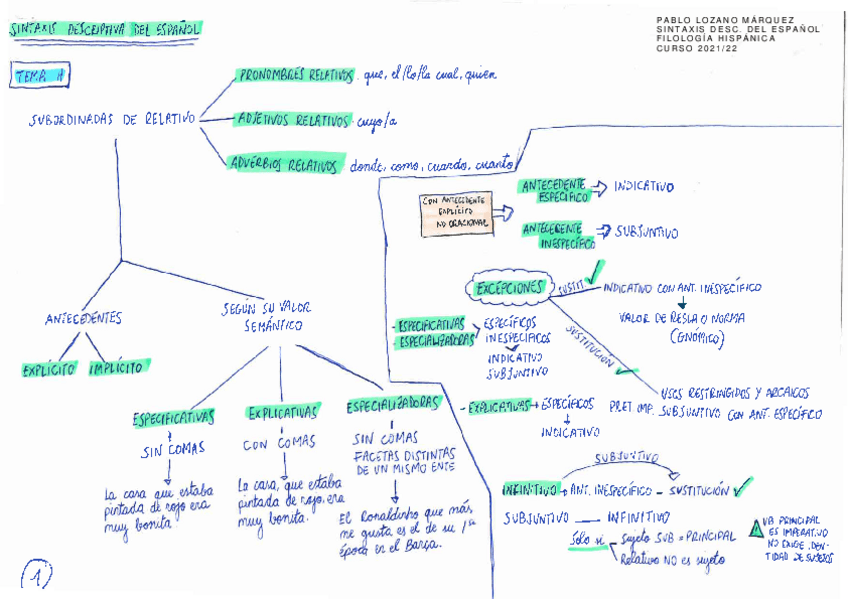 SINTAXIS DESCRIPTIVA DEL ESPAÑOL
PABLO LOZANO MÁRQUEZ
SINTAXIS DESC. DEL ESPAÑOL
FILOLOGÍA HISPÁNICA
CURSO 2021/22
TEMA
SUBORDINADAS DE RELATIVO
PRONOMBRES RELATIVOS. que, el/lo/la cual, quien
ADJETIVOS RELATIVOS. cuyo/a
ADVERBIOS RELATIVOS. donde, como, cuando, cuanto
CON ANTECEDENTE
EXPLÍCITO
NO ORACIONAL
ANTECEDENTE
ESPECÍFICO
INDICATIVO
ANTECEDENTE
INESPECÍFICO
SUBJUNTIVO
EXCEPCIONES
SUSTIT.
INDICATIVO CON ANT. INESPECÍFICO
VALOR DE REGLA O NORMA
(GNÓMICO)
SUSTITUCIÓN
USOS RESTRINGIDOS Y ARCAICOS
PRET. IMP. SUBJUNTIVO CON ANT. ESPECÍFICO
- ESPECIFICATIVAS
- ESPECIALIZADORAS
ESPECÍFICOS
INESPECÍFICOS
INDICATIVO
SUBJUNTIVO
- EXPLICATIVAS
ESPECÍFICOS
INDICATIVO
ANTECEDENTES
EXPLÍCITO
IMPLÍCITO
SEGÚN SU VALOR
SEMÁNTICO
ESPECIFICATIVAS
SIN COMAS
La casa que estaba
pintada de rojo era
muy bonita.
EXPLICATIVAS
CON COMAS
La casa, que estaba
pintada de rojo, era
muy bonita.
ESPECIALIZADORAS
SIN COMAS
FACETAS DISTINTAS
DE UN MISMO ENTE
El Ronaldinho que más
me gusta es el de su 1ª
época en el Barça.
SUBJUNTIVO
INFINITIVO
ANT. INESPECÍFICO - SUSTITUCIÓN
SUBJUNTIVO
INFINITIVO
Sólo si
Sujeto SUB = PRINCIPAL
Relativo NO es sujeto
VB PRINCIPAL
ES IMPERATIVO
NO EXIGE IDEN-
TIDAD DE SUJETOS
1